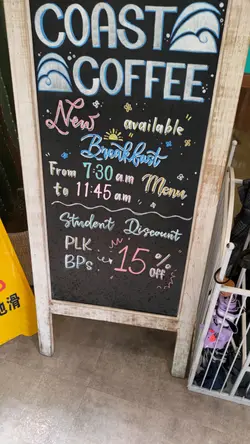 COAST
COFFEE
New available
Breakfast
From 7:30 am Menu
to 11:45 am
Student Discount
PLK
BPs 15% Off
地滑